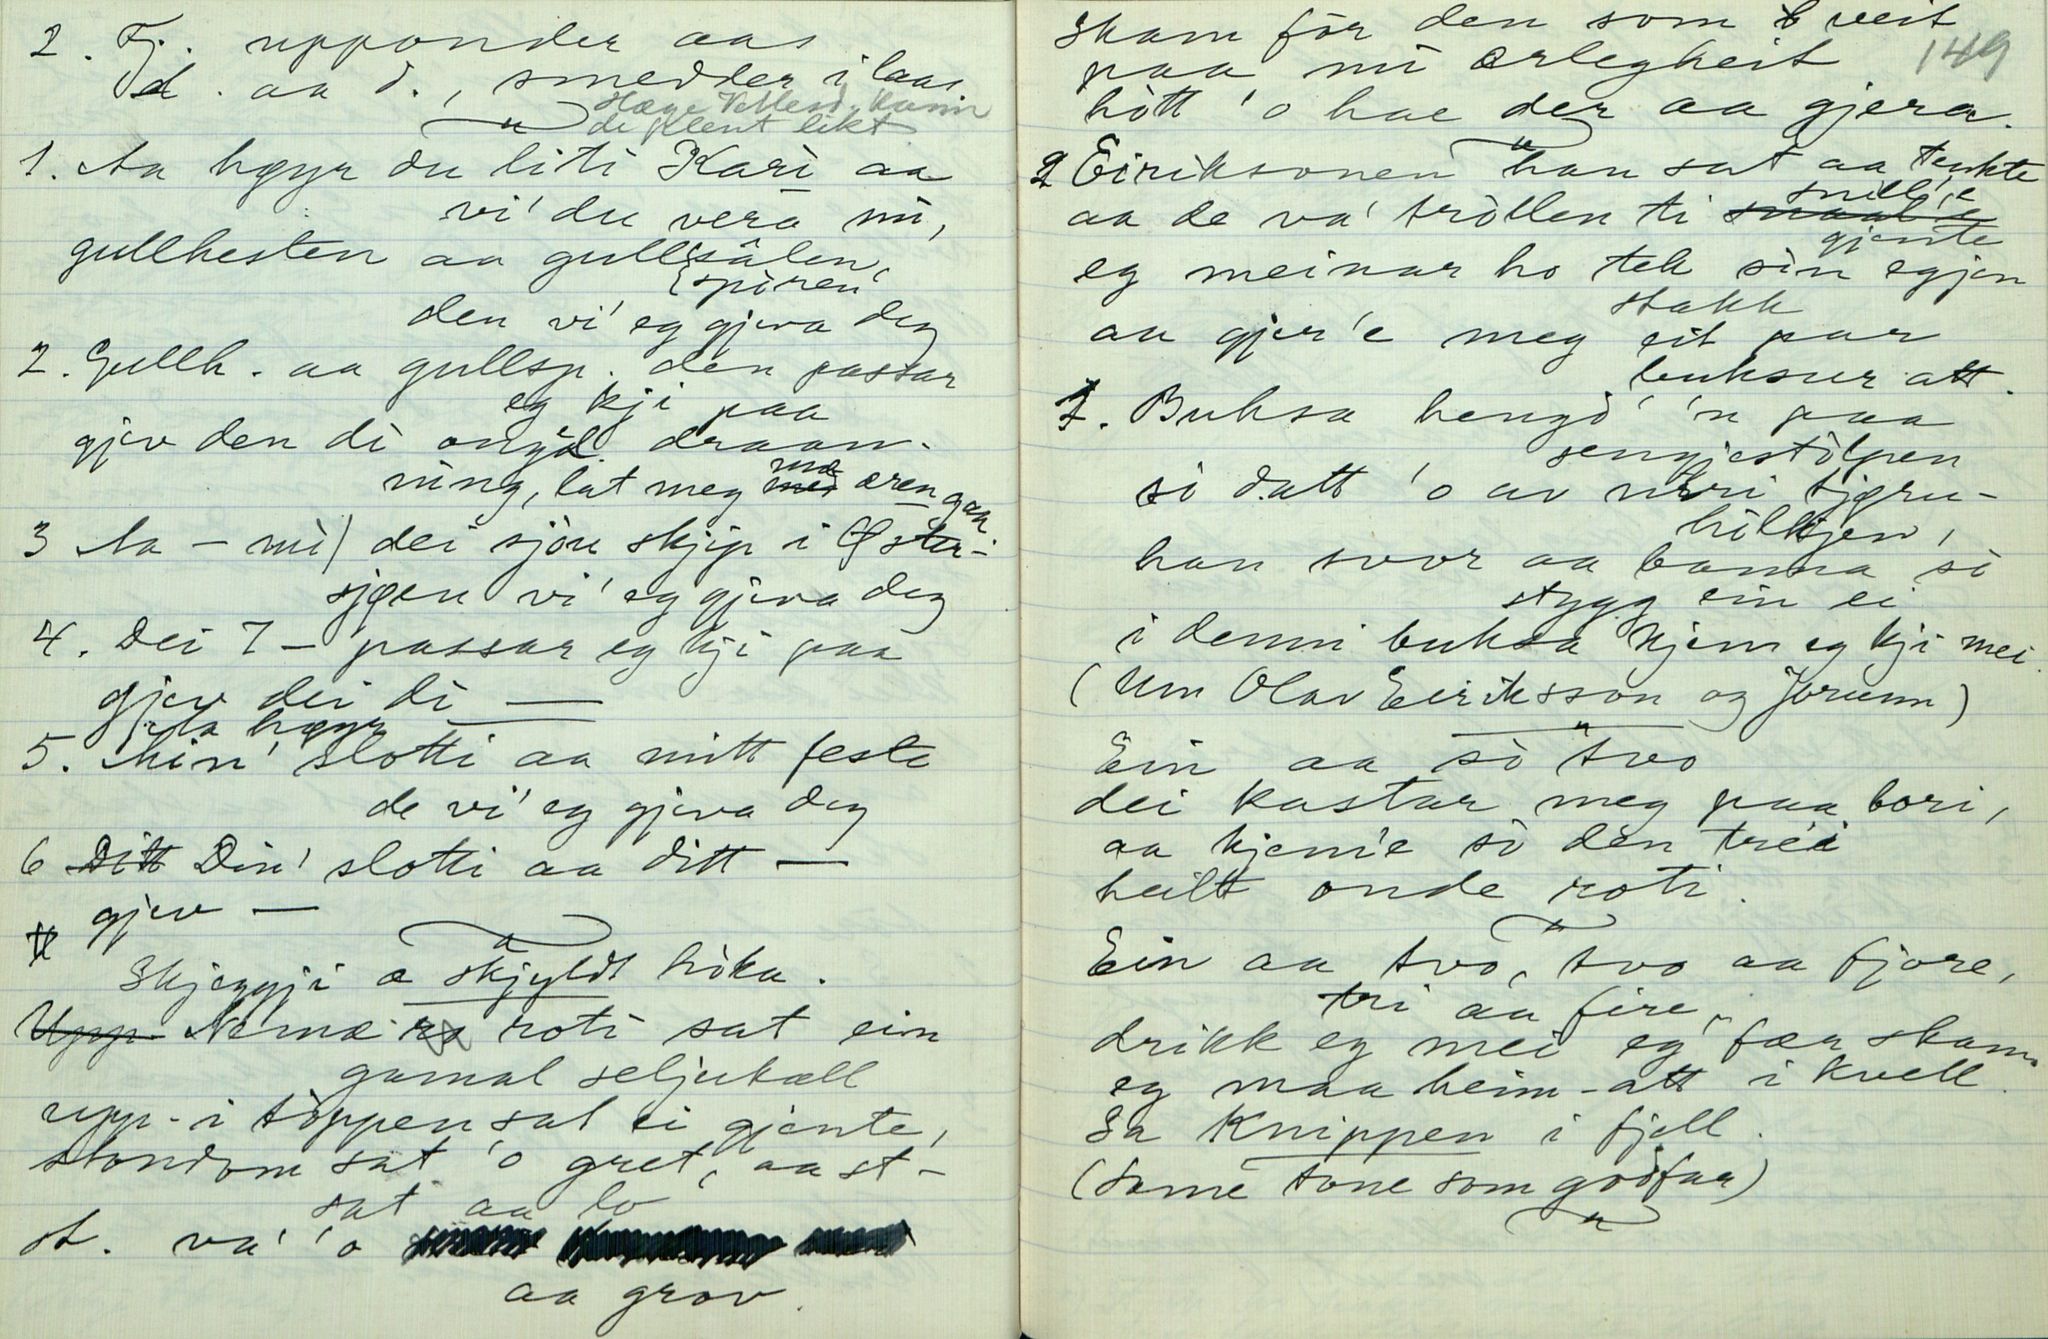 2. Fj. upponder aas
d. aa d., smedder i laas
Hæge Vetlesd. kunne
de plent likt
1. Aa høyr du liti Kari aa
vi' du vera mi,
gullhesten aa gullsâlen,
spòren'
den vi' eg gjeva deg
2. Gullh. aa gullsp. den passar
eg kji paa
gjev den di ongd. draan-
ning, lat meg me æren gaa
3 Aa - mi) dei sjòu skjip i Øster-
sjøen vi' eg gjeva deg
4. Dei 7 - passar eg kji paa
gjev dei di —
Aa høyr
5. Min' slotti aa mitt feste
de vi' eg gjeva deg
6 Ditt Din' slotti aa ditt —
gjev —
Skjeggji æ skjyldt hòka.
Upp Nemæ ro roti sat ein
gamal seljukall
upp-i tòppen sat ei gjente,
stondom sat 'o gret, aa st-
sat aa lo
st. va' 'o
aa grov.
149
Skam fòr den som veit
paa mi ærlegheit
hòtt 'o hae der aa gjera.
2 Eiriksonen han sat aa tenkte
aa de va' tròllen ti snaal'e
snill'e
gjente
eg meinar ho tek sin eigjen
stakk
aa gjer'e meg eit par
buksur att.
3. Buksa hengd' 'n paa
sengjestòlpen
sò datt 'o av neri tjøru-
hòlkjen,
han svor aa banna sò
stygg ein ei
i denni buksa kjem eg kji mei.
(Um Olav Eiriksson og Jorunn)
Ein aa sò tvo
dei kastar meg paa bori,
aa kjem'e sò den tréi
heilt onde roti.
Ein aa tvo, tvo aa fjore,
tri aa fire,
drikk eg mei eg fær skam
eg maa heim-att i kvell.
Sa Knippen i fjell.
(Same tone som godfar)